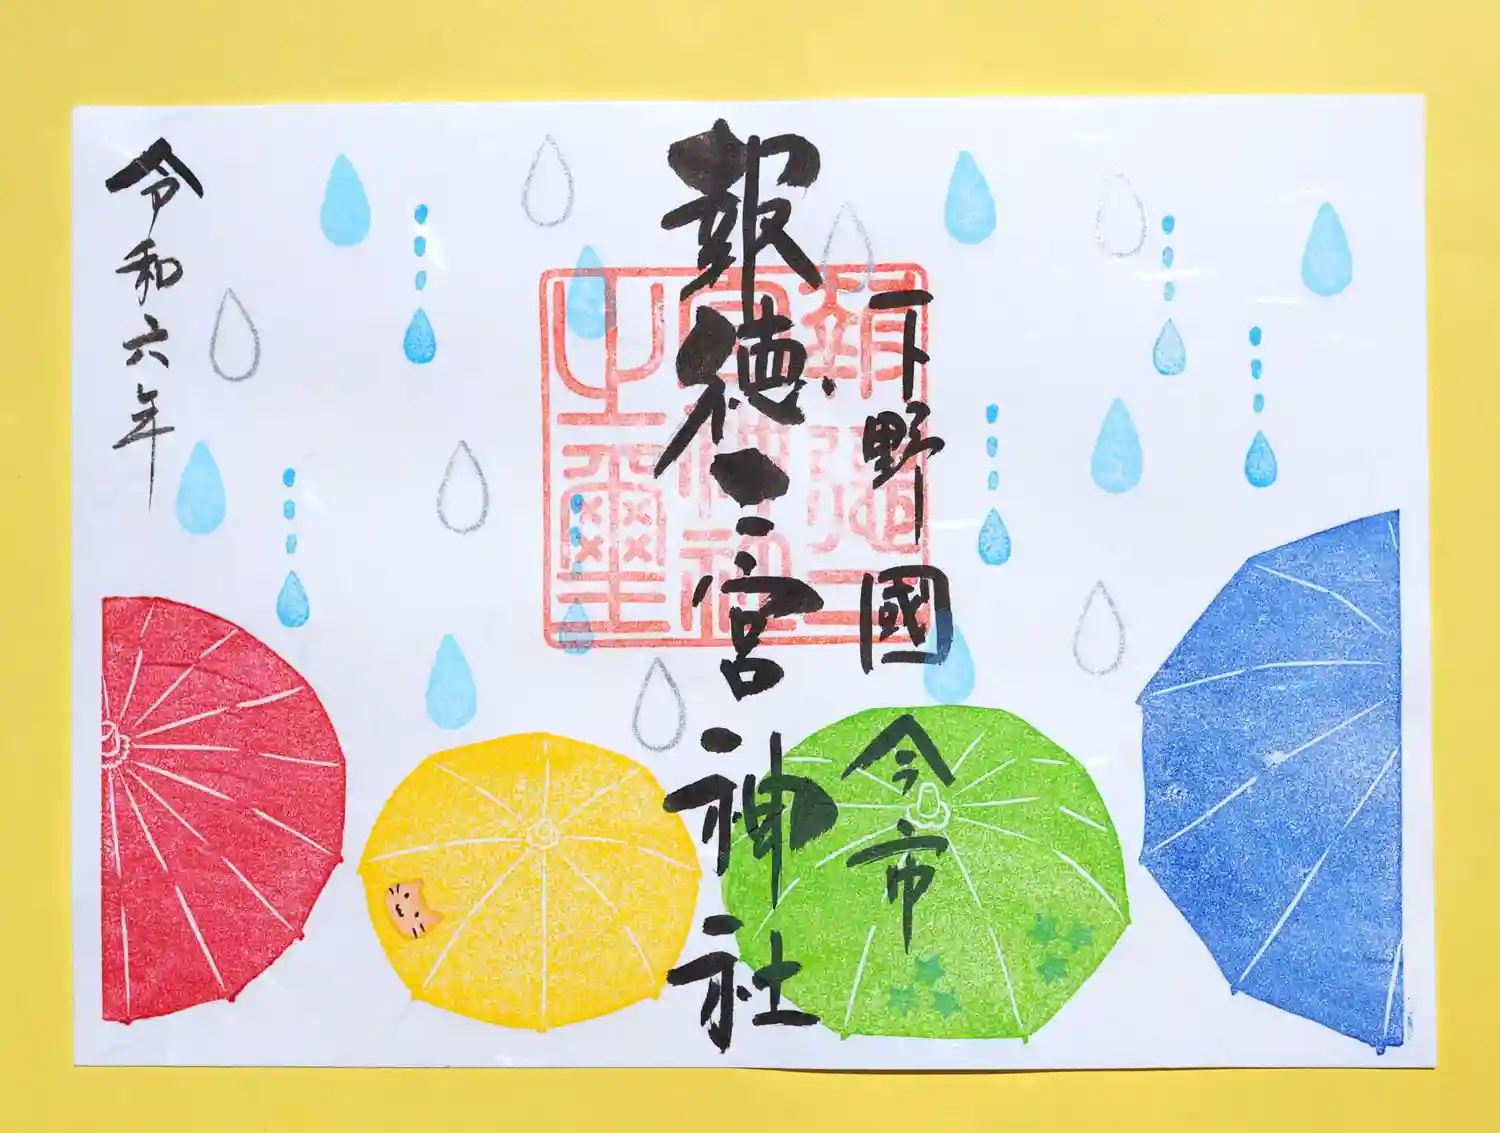 下野國 今市
報徳二宮神社
報徳二宮神社之璽
令和六年